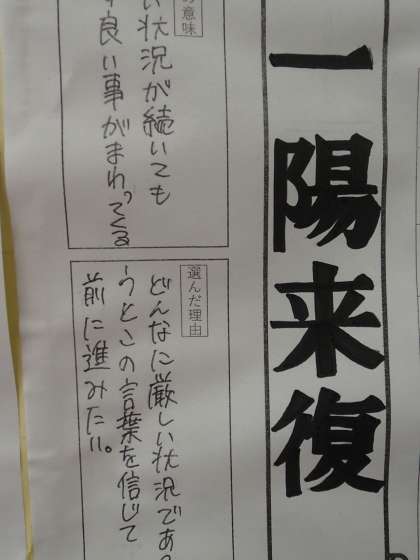 一陽来復
の意味
い状況が続いても
良い事がまわってくる
選んだ理由
どんなに厳しい状況であ
うとこの言葉を信じて
前に進みたい。